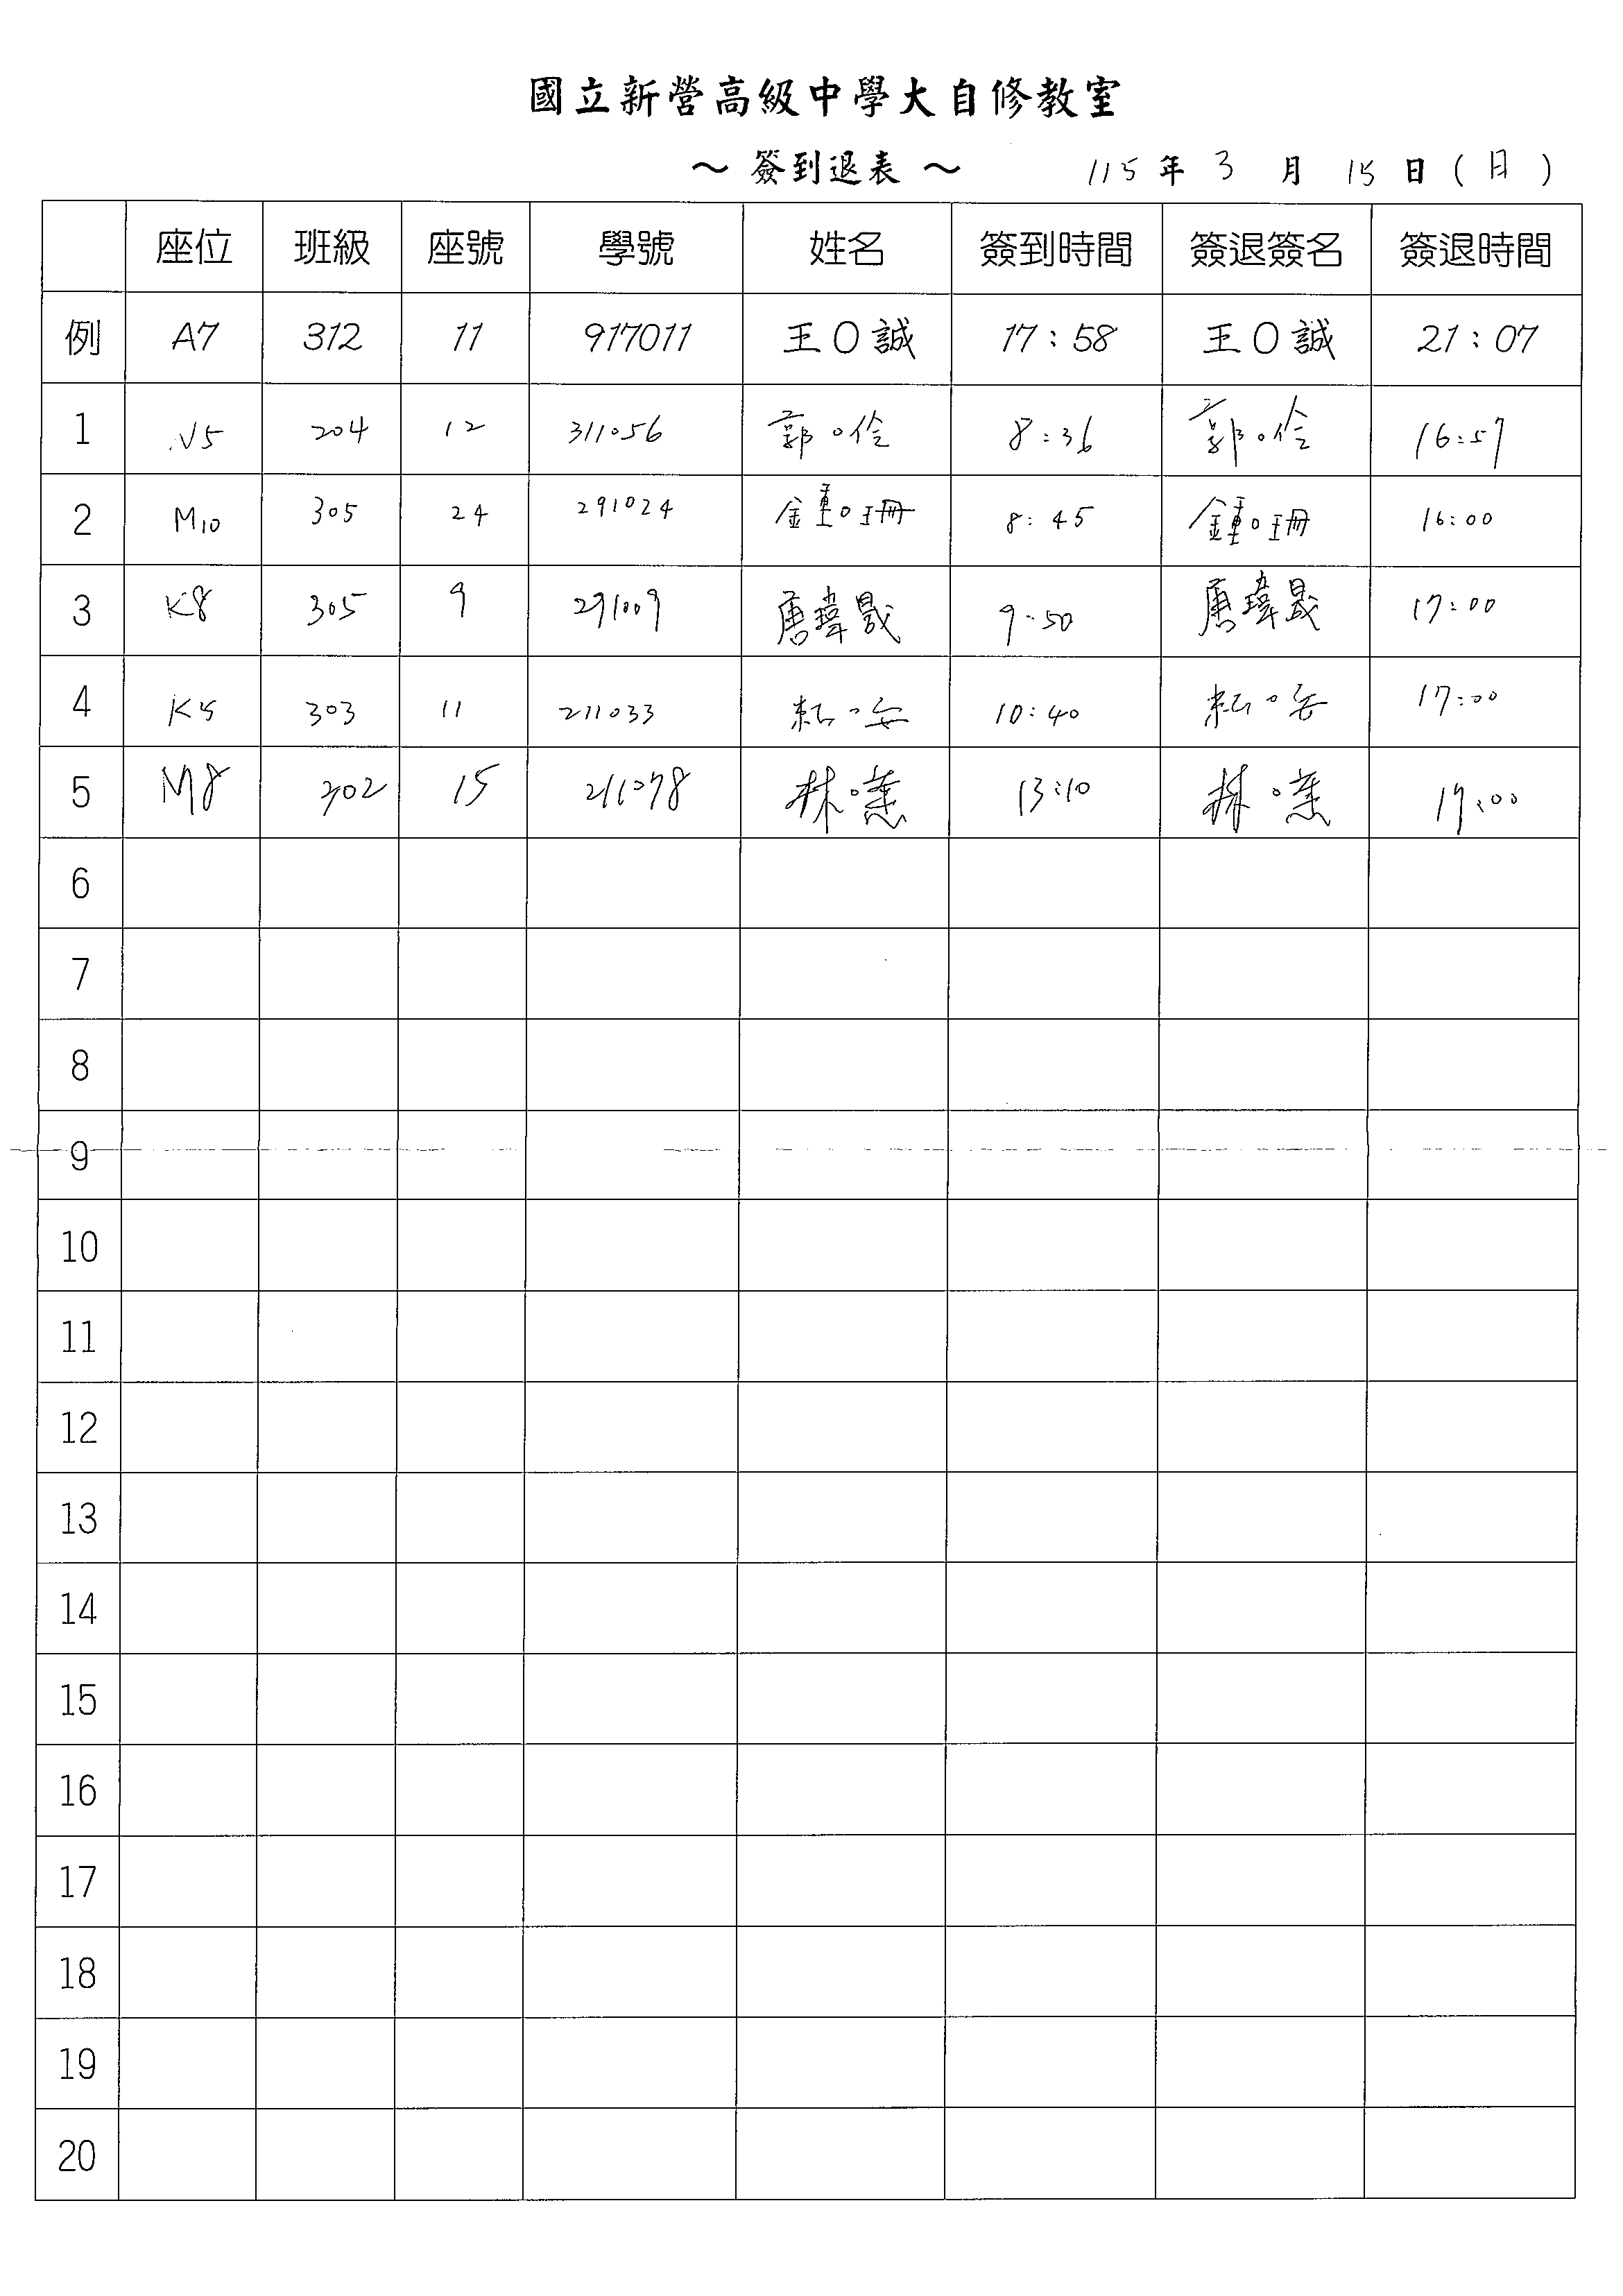 國立新營高級中學大自修教室
～ 簽到退表 ～ 115 年 3 月 15 日 ( 日 )
座位 班級 座號 學號 姓名 簽到時間 簽退簽名 簽退時間
例 A7 312 11 917011 王O誠 17:58 王O誠 21:07
1 N5 204 12 311056 郭O伶 8:36 郭O伶 16:57
2 M10 305 24 291024 鍾O珊 8:45 鍾O珊 16:00
3 K8 305 9 291009 唐瑋晟 9:50 唐瑋晟 17:00
4 K5 303 11 211033 O安 10:40 O安 17:00
5 M8 302 15 211078 林O 13:10 林O 17:00
6
7
8
9
10
11
12
13
14
15
16
17
18
19
20